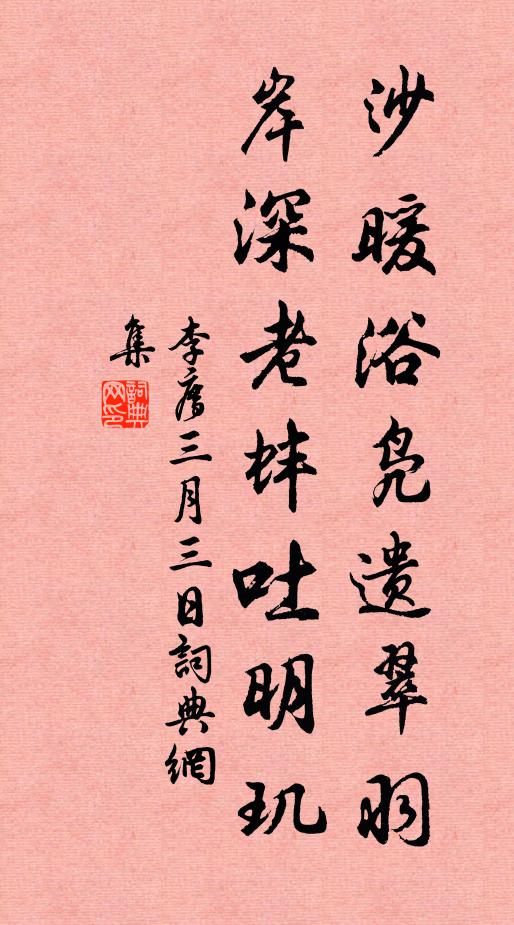 沙暖浴凫遗翠羽
岸深老蚌吐明玑
李廌三月三日詞典網
集
詞典網印